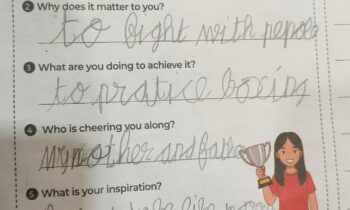 2 Why does it matter to you?
to bight with pepole
3 What are you doing to achieve it?
to pratice boxing
4 Who is cheering you along?
my mother and fathe
5 What is your inspiration?